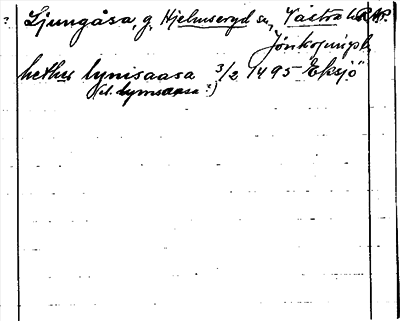 ? Ljungåsa, g. Hjelmseryd sn, Västra hd RAP.
Jönköpings l.
hether lynisaasa 3/2 1495 Eksjö
(el. lymsaasa?)